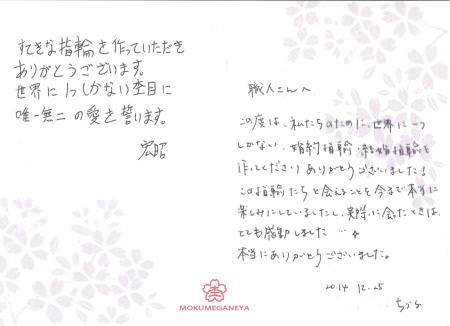 すてきな指輪を作っていただき
ありがとうございます。
世界に1つしかない杢目に
唯一無二の愛を誓います。
宏昭
職人さんへ
この度は、私たちのために、世界に一つ
しかない、婚約指輪・結婚指輪を
作ってくださりありがとうございました!
この指輪たちと会えることを今まで本当に
楽しみにしていましたし、実際に会えたときは、
とても感動しました…。
本当にありがとうございました。
2014.12.25
ちづる
MOKUMEGANEYA